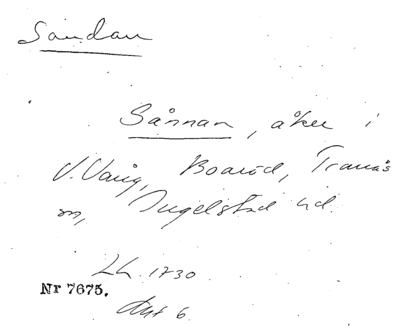 Sandan
Sånnan, åker i
V. Vång, Boaröd, Tranås
sn, Ingelstad hd.
LL. 1730
Nr 7675.
Akt 6